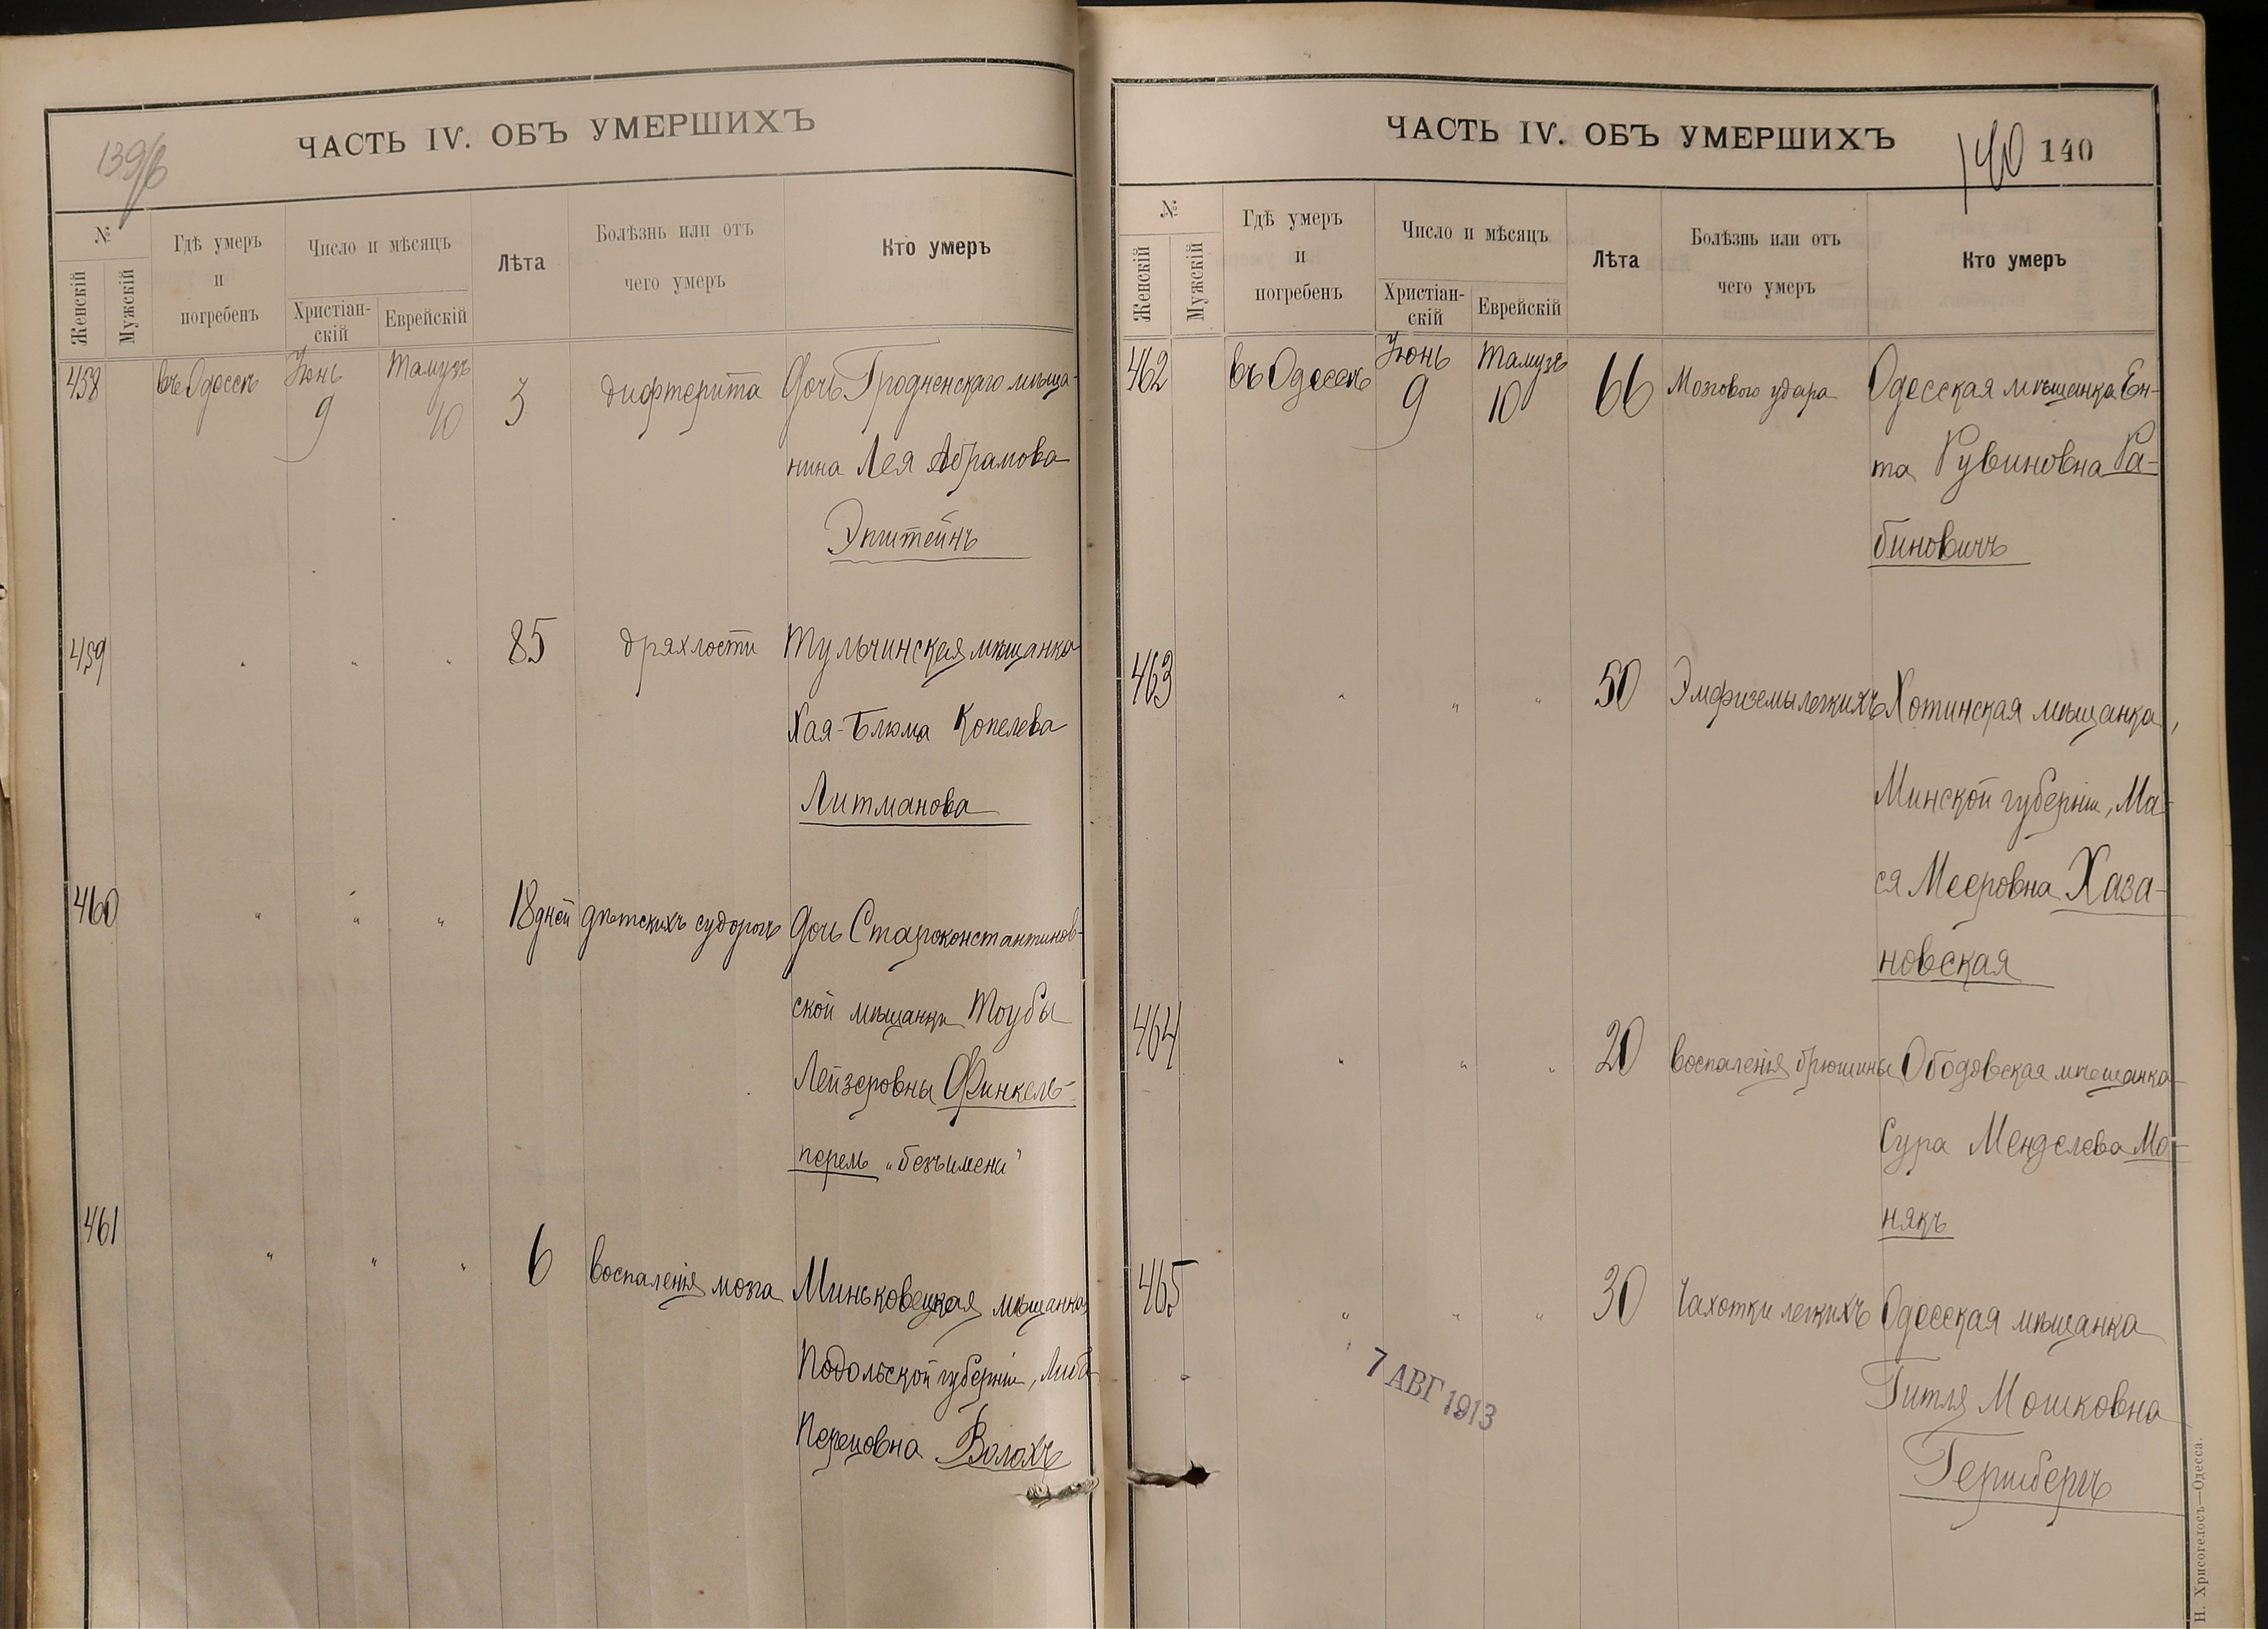 ЧАСТЬ IV. ОБЪ УМЕРШИХЪ
139/б
№
Женскій
Мужскій
Гдѣ умеръ
и
погребенъ
Число и мѣсяцъ
Христіан-
скій
Еврейскій
Лѣта
Болѣзнь или отъ
чего умеръ
Кто умеръ
458 въ Одессѣ Іюнь 9 Тамузъ 10 3 дифтерита Дочь Гродненскаго мѣща-
нина Лея Абрамова
Эпштейнъ
459 " " " 85 дряхлости Тульчинская мѣщанка
Хая-Блюма Копелева
Литманова
460 " " " 18 дней дѣтскихъ судорогъ Дочь Староконстантинов-
ской мѣщанки Тоубы
Лейзеровны Финкель-
перель „безъ имени"
461 " " " 6 воспаленія мозга Миньковецкая мѣщанка
Подольской губерніи, Либа
Перецовна Волохъ
ЧАСТЬ IV. ОБЪ УМЕРШИХЪ
140 140
№
Женскій
Мужскій
Гдѣ умеръ
и
погребенъ
Число и мѣсяцъ
Христіан-
скій
Еврейскій
Лѣта
Болѣзнь или отъ
чего умеръ
Кто умеръ
462 въ Одессѣ Іюнь 9 Тамузъ 10 66 Мозгового удара Одесская мѣщанка Ен-
та Рувиновна Ра-
биновичъ
463 " " " 50 Эмфиземы легкихъ Хотинская мѣщанка,
Минской губерніи, Ма-
ся Мееровна Хаза-
новская
464 " " " 20 воспаленія брюшины Ободовская мѣщанка
Сура Менделева Мо-
някъ
465 " " " 30 Чахотки легкихъ Одесская мѣщанка
Гитля Мошковна
Гершбергъ
7 АВГ 1913
Н. Хрисогелосъ—Одесса.